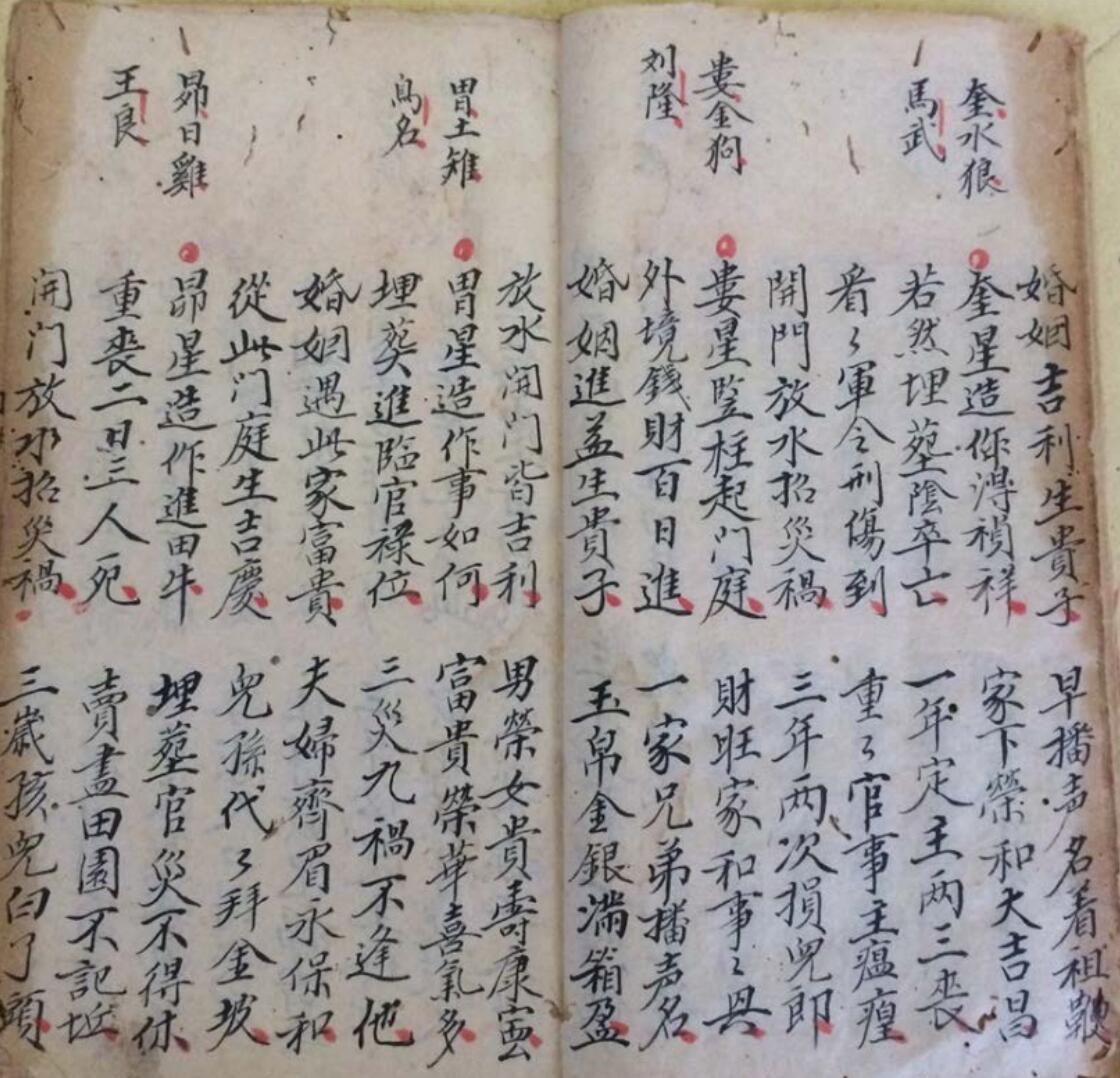 婚姻吉利生貴子
早播声名着祖鞭
奎水狼
馬武
奎星造作得禎祥
家下榮和大吉昌
若然埋塟陰卒亡
一年定主两三喪
看々軍令刑傷到
重々官事主瘟瘟
開門放水招災禍
三年两次損兒郎
婁金狗
刘隆
婁星竪柱起門庭
財旺家和事々興
外境錢財百日進
一家兄弟播声名
婚姻進益生貴子
玉帛金銀满箱盈
放水開門皆吉利
男榮女貴壽康寧
胃土雉
烏名
胃星造作事如何
富貴榮華喜氣多
埋葵進臨官禄位
三災九禍不逢他
婚姻遇此家富貴
夫婦齊眉永保和
從此門庭生吉慶
兒孫代々拜金坡
昴日雞
王良
昴星造作進田牛
埋塟官災不得休
重喪二日三人死
賣盡田園不記坵
開門放水招災禍
三歲孩兒白了頭